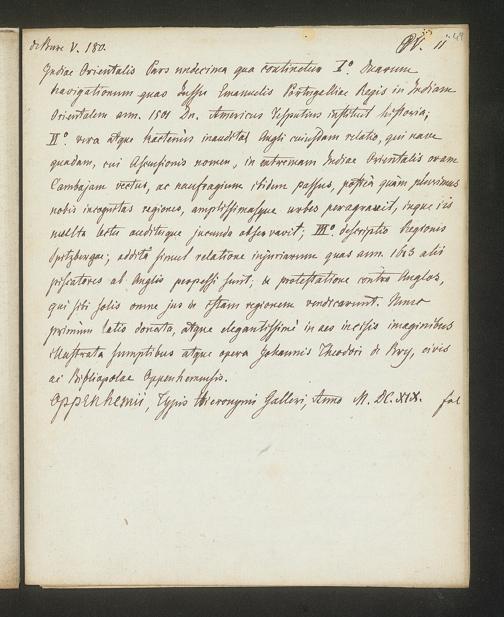 de Bure V. 180. PV. ii 49
Indiae Orientalis Pars undecima qua continetur I.° Duarum
navigationum quas Jussu Emanuelis Portugalliae Regis in Indiam
Orientalem ann. 1501 Dn. Americus Vesputius instituit historia;
II.° vera atque hactenus inaudita Angli cuiusdam relatio, qui nave
quadam, cui Ascensionis nomen, in extremam Indiae Orientalis oram
Cambajam vectus, ac naufragium ibidem passus, postea quàm plurimas
nobis incognitas regiones, amplissimasque urbes peragravit, inque iis
multa lectu audituque jucunda observavit; III.° descriptio Regionis
Spitzbergae; addita simul relatione injuriarum quas ann. 1613 alii
piscatores ab Anglis perpessi sunt: & protestatione contra Anglos,
qui sibi solis omne jus in istam regionem vendicarunt. Nunc
primùm latio donata, atque elegantissimè in aes incisis imaginibus
illustrata sumptibus atque opera Johannis Theodori de Bry, civis
ac Bibliopolae Oppenhemensis.
Oppenhemii, Typis Hieronymi Galleri, Anno M. DC. XIX. fol